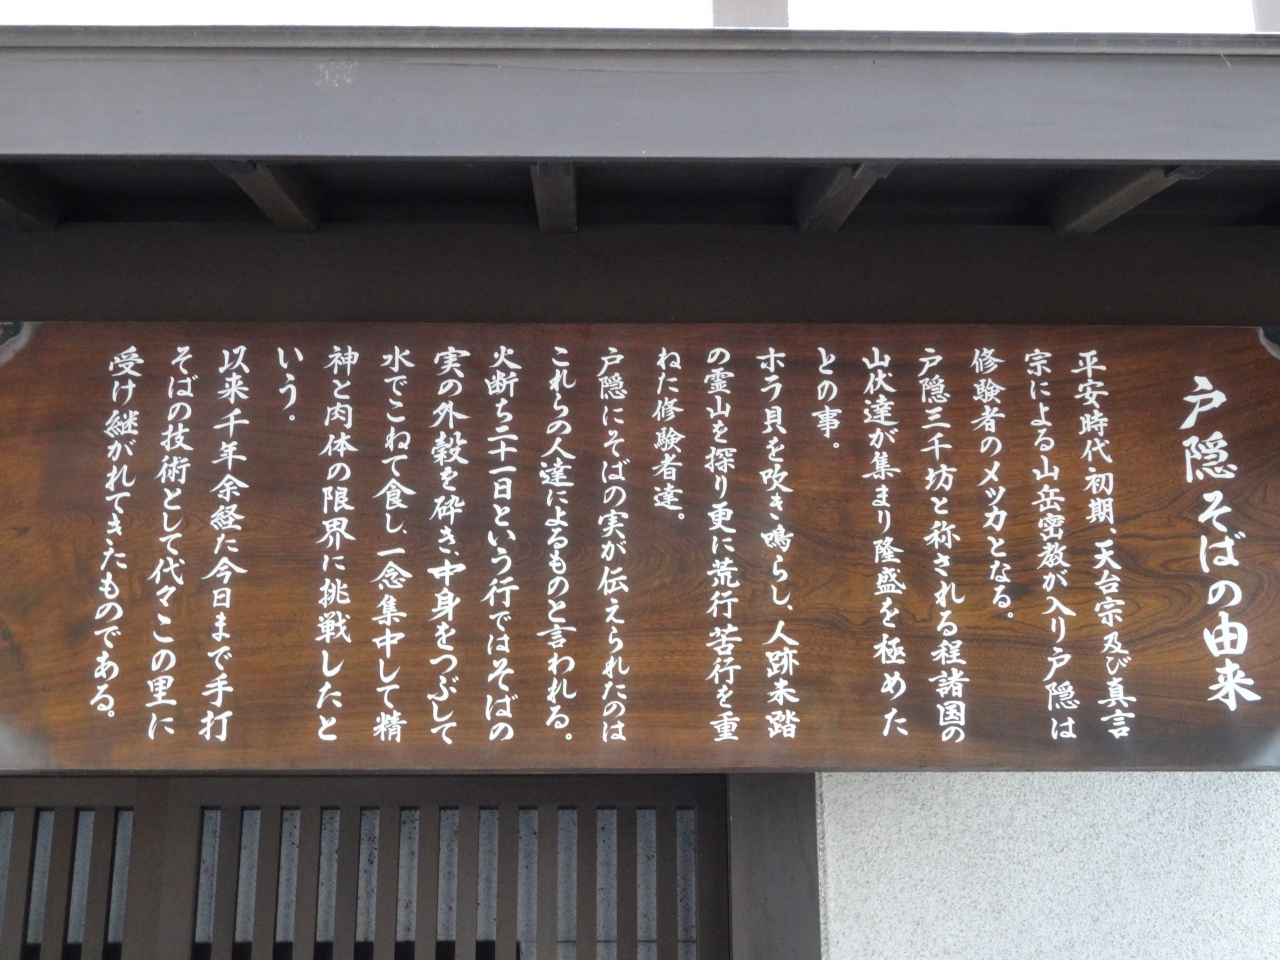 戸隠そばの由来
平安時代初期、天台宗及び真言
宗による山岳密教が入り戸隠は
修験者のメッカとなる。
戸隠三千坊と称される程諸国の
山伏達が集まり隆盛を極めた
との事。
ホラ貝を吹き鳴らし、人跡未踏
の霊山を探り更に荒行苦行を重
ねた修験者達。
戸隠にそばの実が伝えられたのは
これらの人達によるものと言われる。
火断ち二十一日という行ではそばの
実の外殻を砕き、中身をつぶして
水でこねて食し、一念集中して精
神と肉体の限界に挑戦したと
いう。
以来千年余経た今日まで手打
そばの技術として代々この里に
受け継がれてきたものである。